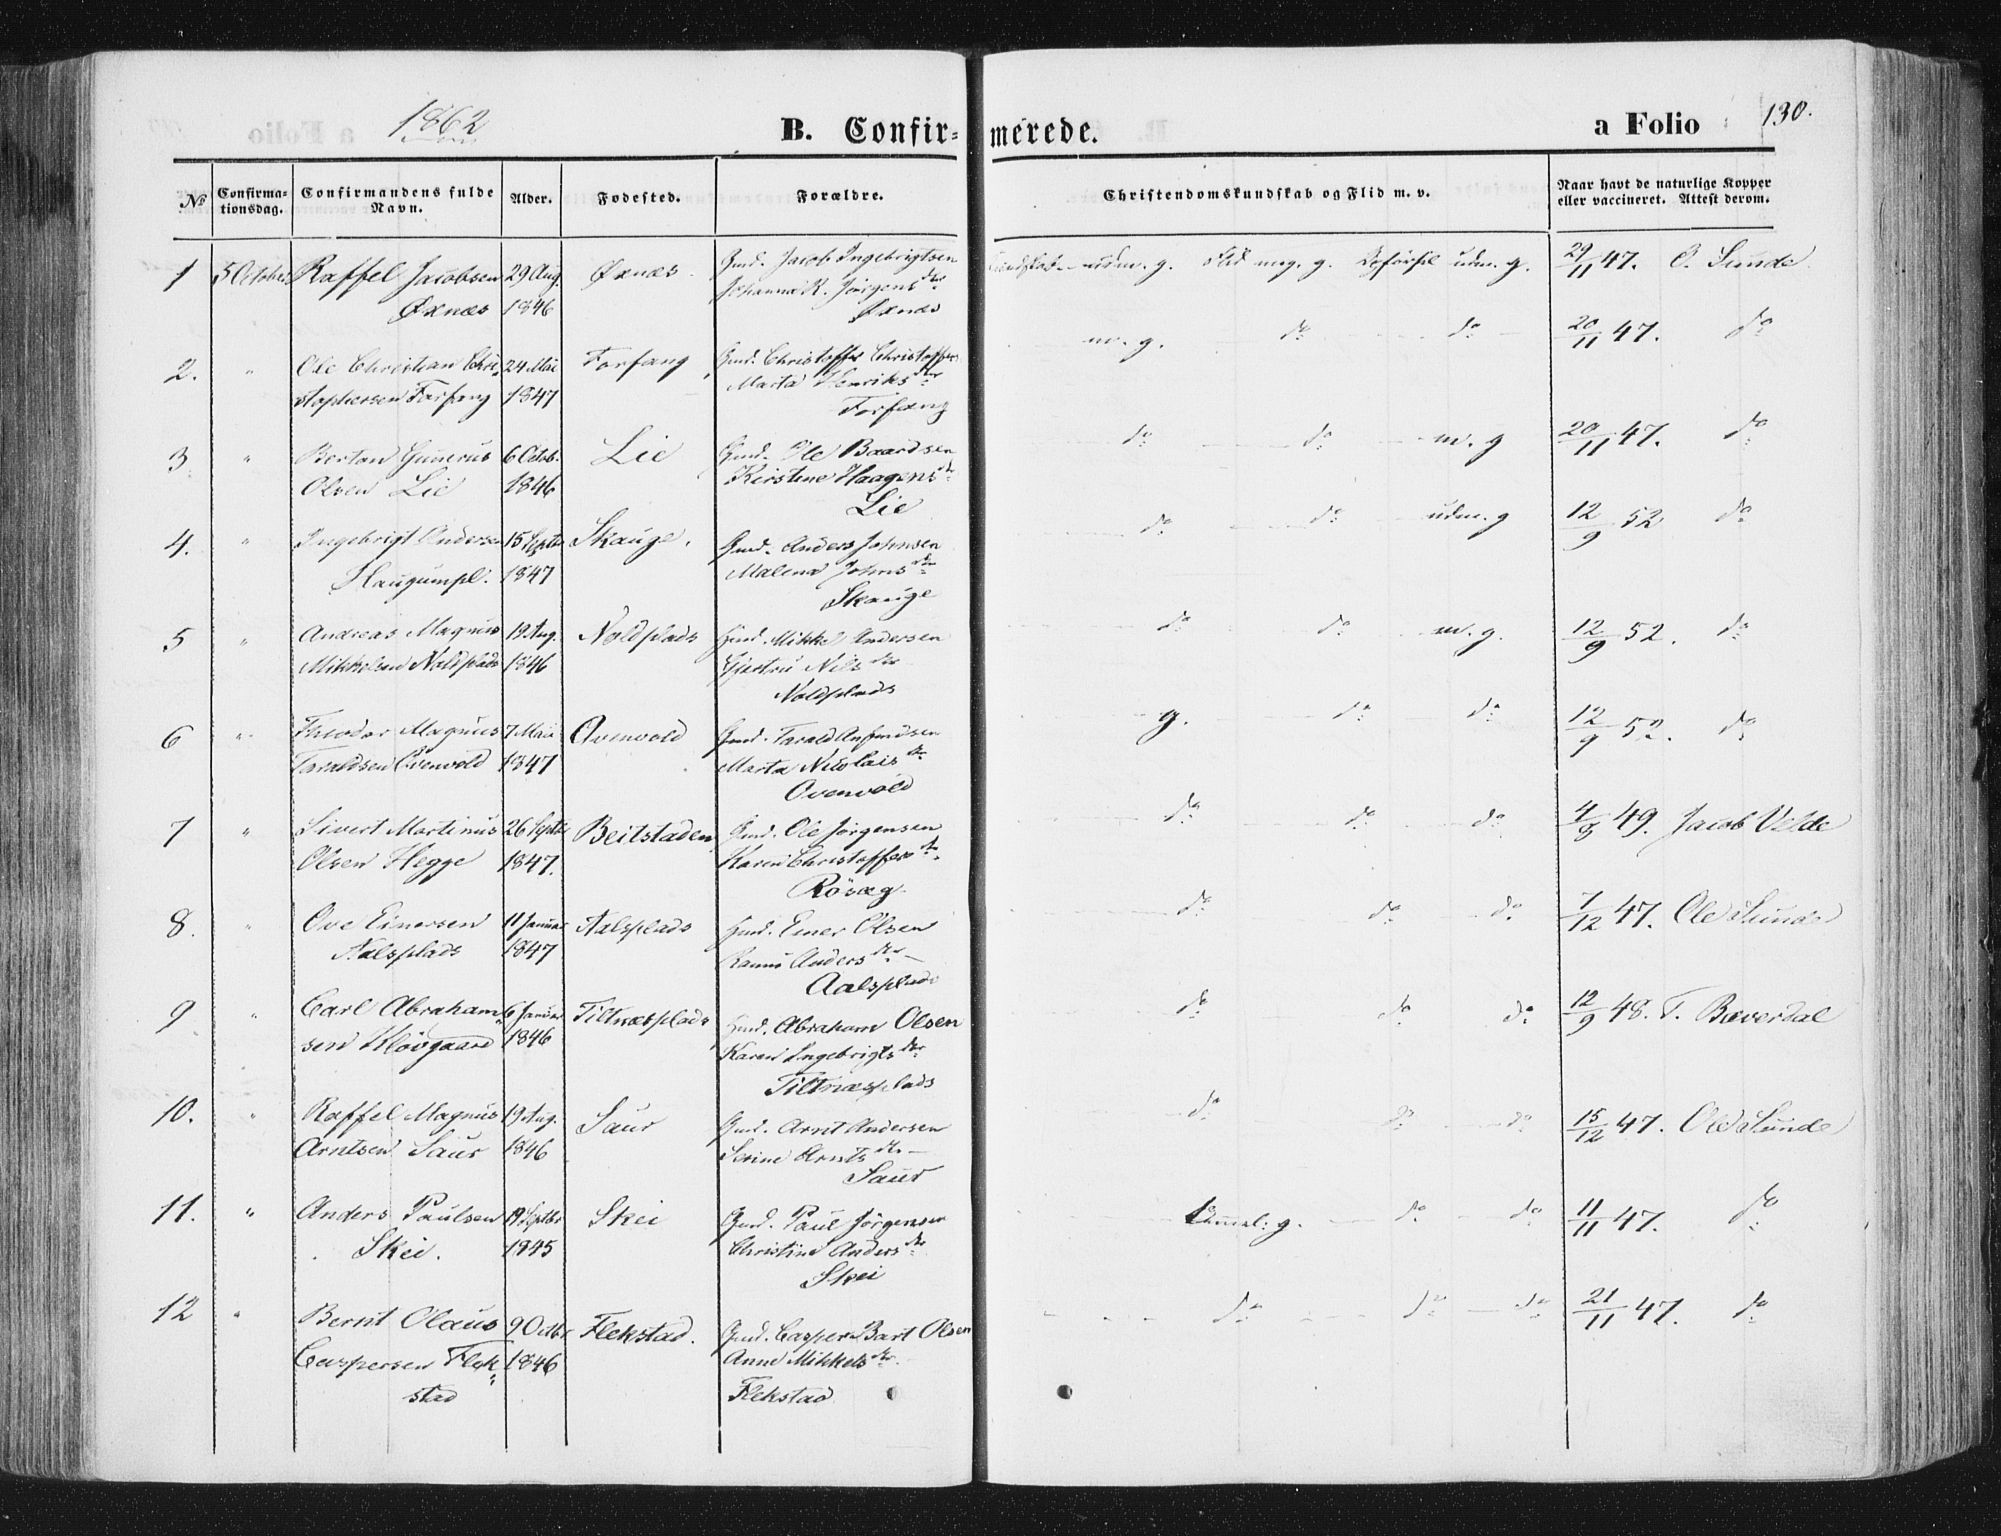 1862
B. Confir-
merede.
a Folio 130.
№ Confirma-tionsdag. Confirmandens fulde Navn. Alder. Fødested. Forældre. Christendomskundskab og Flid m. v. Naar havt de naturlige Kopper eller vaccineret. Attest derom.
1 5 October Raffel Jacobsen 29 Aug. Øxnæs. Gmd. Jacob Ingebrigtsen udm. g. Flid meg. g. Opførsel udm. g. 29/11 47. O. Sunde
Øxnæs 1846 Johanna K. Jørgensdr
Øxnæs
2. " Ole Christian Chri- 24 Mai Forfang Gmd. Christoffer Christoffers m. g. do do 20/11 47. do
stophersen Forfang 1847 Marta Henriksdr
Forfang
3 " Bertan Gunerus 6 Octob. Lie Gmd. Ole Baardsen do do m. g 20/11 47. do
Olsen Lie 1846 Kirstine Haagensdr
Lie
4. " Ingebrigt Andersen 15 Septbr Skauge. Gmd. Anders Johnsen do do udm. g 12/9 52 do
Haugumpl. 1847 Malena Johnsdr
Skauge
5 " Andreas Magnus 19 Aug. Noldplads Hmd. Mikkel Andersen do do m. g. 12/9 52. do
Mikkelsen Noldplads 1846 Gjertru Nilsdr
Noldplads
6 " Theodor Magnus 7 Mai Ovenvold Gmd. Tarald Anfindsen g. do do 12/9 52. do
Taraldsen Ovenvold 1847 Marta Nicolaisdr
Ovenvold
7 " Sivert Martinus 26 Septbr Beitstaden Gmd. Ole Jørgensen do do do 4/8 49. Jacob Velde
Olsen Hegge 1847. Karen Christoffersdr
Rösæg
8. " Ove Einersen 11 Januar Aalsplads Hmd. Einer Olsen do do do 7/12 47. Ole Sunde
Aalsplads 1847 Andersdr
Aalsplads
9 " Carl Abraham- 6 Januar Tiltnæsplads Hmd. Abraham Olsen do do do 12/9 48. T. Bæverdal
sen Klövgaard 1846 Karen Ingebrigtsdr
Tiltnæsplads
10. " Raffel Magnus 19 Aug. Saur Gmd. Arnt Andersen do do do 15/12 47. Ole Sunde
Arntsen Saur 1846 Serine Arntsdr
Saur
11. " Anders Paulsen 19 Septbr Skei Gmd. Paul Jörgensen g. do do 11/11 47. do
Skei. 1845 Christine Andersdr
Skei
12 " Bernt Olaus 9 Octbr Flekstad. Gmd. Casper Bart Olsen do do do 21/11 47. do
Caspersen Flek- 1846 Anne Mikkelsdr
stad Flekstad